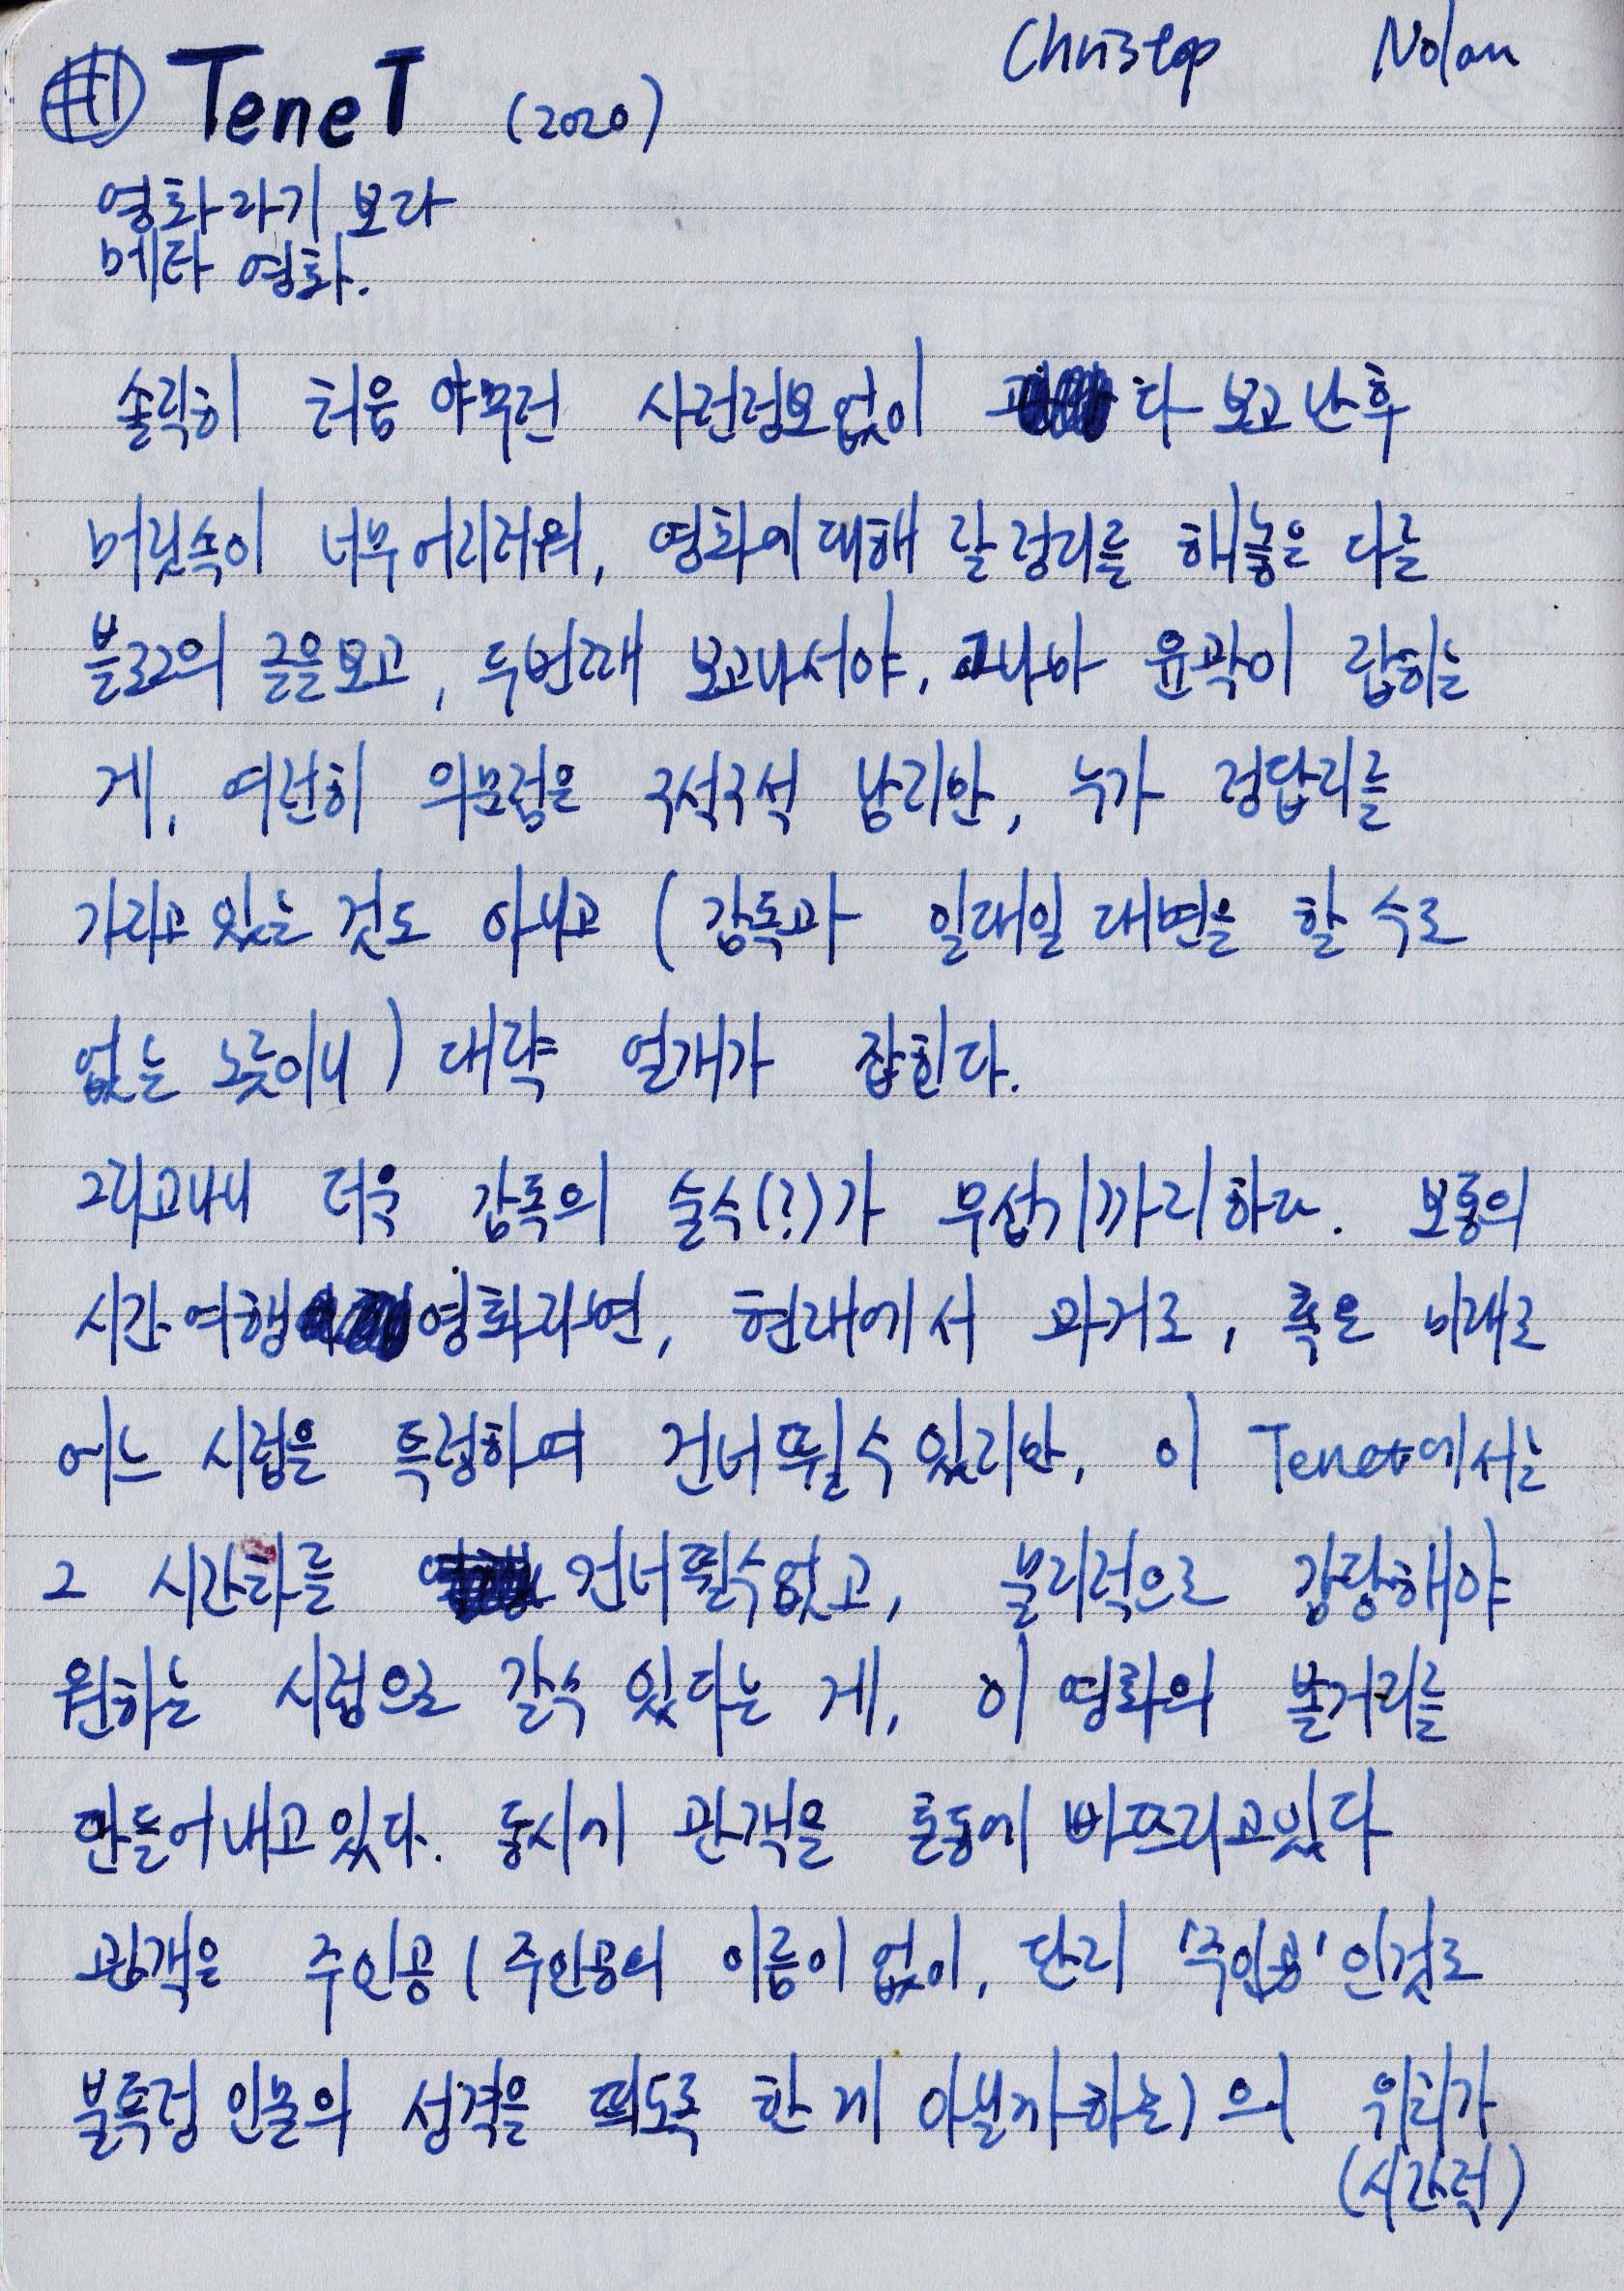 #1 TeneT (2020) Christop Nolan
영화라기 보다
메타 영화.
솔직히 처음 아무런 사전정보없이 다 보고난후
머릿속이 너무어리러워, 영화에대해 잘정리를 해놓은 다른
블로그의 글을보고, 두번째 보고나서야, 그나마 윤곽이 잡히는
게, 여전히 의문점은 구석구석 남지만, 누가 정답지를
가지고 있는 것도 아니고 (감독과 일대일 대면을 할 수도
없는 노릇이니) 대략 얼개가 잡힌다.
그리고나니 더욱 감독의 술수(?)가 무섭기까지하다. 보통의
시간여행 영화라면, 현재에서 과거로, 혹은 미래로
어느 시점을 특정하여 건너뛸수 있지만, 이 Tenet에서는
그 시간차를 건너뛸수없고, 물리적으로 감당해야
원하는 시점으로 갈수 있다는 게, 이 영화의 볼거리를
만들어내고있다. 동시에 관객을 혼동에 빠뜨리고있다
관객은 주인공 (주인공의 이름이 없이, 단지 '주인공'인것도
불특정 인물의 성격을 띄도록 한 게 아닐까하는)의 위치가
(시간적)